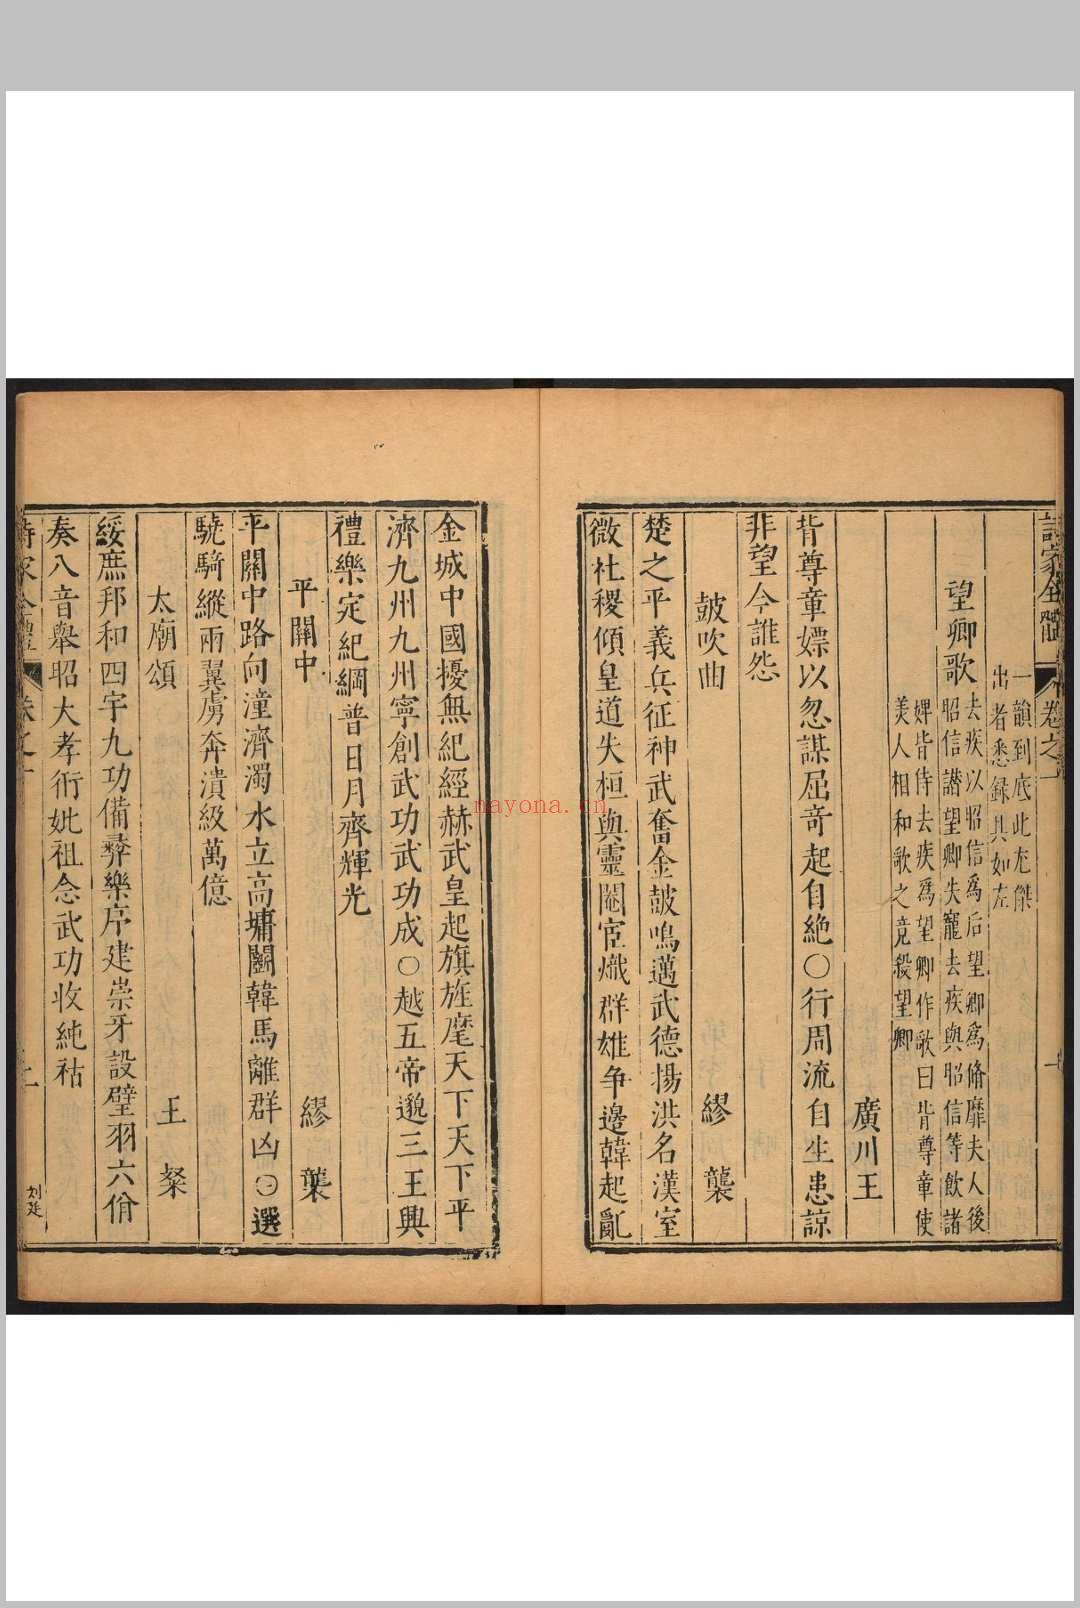 詩家全體 卷之一
一韻到底此尤傑
出者悉録具如左
望卿歌
去疾以昭信為后望卿為脩靡夫人後
昭信譖望卿失寵去疾與昭信等飲諸
婢皆侍去疾為望卿作歌曰背尊章使
美人相和歌之竟殺望卿
廣川王
背尊章嫖以忽謀屈奇起自絶〇行周流自生患諒
非望今誰怨
鼓吹曲 繆 襲
楚之平義兵征神武奮金鼓鳴邁武德揚洪名漢室
微社稷傾皇道失桓與靈閹宦熾群雄争邊韓起亂
金城中國擾無紀經赫武皇起旗旌麾天下天下平
濟九州九州寧創武功武功成〇越五帝邈三王興
禮樂定紀綱普日月齊輝光
平關中 繆 襲
平關中路向潼濟濁水立高墉鬬韓馬離群凶〇選
驍騎縱兩翼虜奔潰級萬億
太廟頌 王 粲
綏庶邦和四宇九功備彝樂序建崇牙設璧羽六佾
奏八音舉昭大孝衎妣祖念武功收純祜
刘廷
nayona.cn